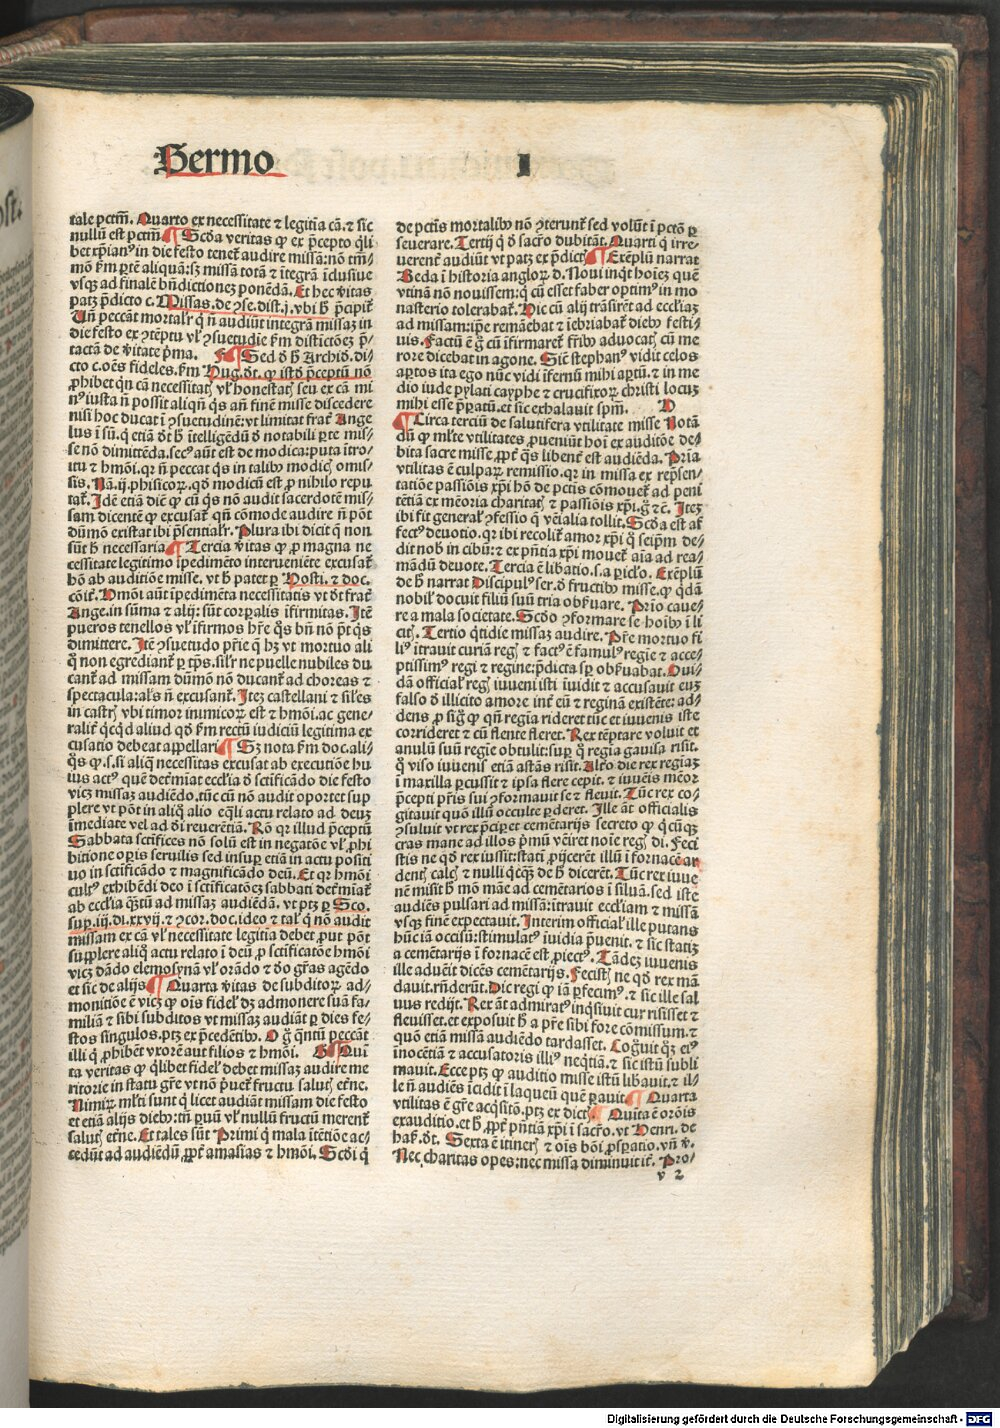 Sermo I
tale pctm̄. Quarto ex necessitate ⁊ legitīa cā. ⁊ sic
nullū est pctm̄. ¶ Scd̓a veritas ꝙ ex p̄cepto q̄li
bet xp̄ianꝰ in die festo tenet᷑ audire missā: nō tm̄
mō ẜm ꝑtē aliquā: sꝫ missā totā ⁊ ītegrā īclusiue
vsqꝫ ad finalē bn̄dictionez ponēdā. Et hec v̓itas
patꝫ p̄dicto c. Missas. de ꝯse. dist. j. vbi h̄ p̄cipit᷑
die festo ex ꝯtēptu vl̓ ꝯsuetudie ẜm distictōeꝫ p̄-
tactā de v̓itate p̄ma. F ¶ Sed ꝺ h̄ Archid̓. di
cto c. oēs fideles. ẜm Hug. ꝺt. ꝙ istd̓ p̄ceptū nō
ꝓhibet qn̄ cā necessitatꝭ vl̓ honestatꝭ seu ex cā mi
nꝰ iusta n̄ possit aliqn̄ q̄s an̄ finē misse discedere
nisi hoc ducat ī ꝯsuetudinē: vt limitat frat᷑ Ange
lus ī sū. q̄ etiā ꝺt h̄ ītelligēdū ꝺ notabili ꝑte mis-
se nō dimittēda. secꝰ aūt est de modica: puta ītro-
itu ⁊ hmōi. qꝛ n̄ peccat q̄s in talib̓ modicꝭ omis-
sis. Nā. ij. phisicoꝝ. qd̓ modicū est ꝓ nihilo repu
tat᷑. Idē etiā dic̄ ꝙ cū q̄s nō audit sacerdotē mis-
sam dicentē ꝙ excusat᷑ qn̄ cōmode audire n̄ pōt
dūmō existat ibi p̄sentialr̓. Plura ibi dicit q̄ non
sūt h̄ necessaria ¶ Tercia v̓itas ꝙ ꝓ magna ne
cessitate legitimo īpedimēto interueniēte excusat᷑
hō ab auditiōe misse. vt h̄ patet ꝑ Hosti. ⁊ doc.
cōit᷑. Hmōi aūt īpedimēta necessitatis vt ꝺt frat᷑
Ange. in sūma ⁊ alij: sūt corꝑalis īfirmitas. Itē
pueros tenellos vl̓ īfirmos hr̄e q̄s bn̄ nō p̄t q̄s
dimittere. Itē ꝯsuetudo pr̄ie q̄ hꝫ vt mortuo ali
q̄ non egrediant᷑ ꝑ tp̄s. sil̓r ne puelle nubiles du
cant᷑ ad missam dūmō nō ducant᷑ ad choreas ⁊
spectacula: al̓s n̄ excusant᷑. Iteꝫ castellani ⁊ sil̓es
in castrꝭ vbi timor inimicoꝝ est ⁊ hmōi. ac gene-
ralit᷑ qcq̄d aliud qd̓ ẜm rectū iudiciū legitima ex
cusatio debeat appellari ¶ Sꝫ nota ẜm doc. ali-
q̄s ꝙ. s. si aliq̄ necessitas excusat ab executiōe hu
ius actꝰ quē det̓miat eccl̓ia ꝺ scificādo die festo
vicꝫ missaꝫ audiēdo. tūc cū nō audit oportet sup
plere vt pōt in aliq̄ alio eq̄li actu relato ad deuꝫ
īmediate vel ad d̓i reuerētiā. Rō qꝛ illud p̄ceptū
Sabbata sctifices nō solū est in negatōe vl̓ ꝓhi
bitione oꝑis seruilis sed insuꝑ etiā in actu positi
uo in scificādo ⁊ magnificādo deū. Et qꝛ hmōi
cultꝰ exhibēdi deo ī scificatōeꝫ sabbati det̓miat᷑
ab eccl̓ia q̄ꝫtū ad missaꝫ audiēdā. vt ptꝫ ꝑ Sco.
suꝑ. iij. di. xxvij. ⁊ ꝯcor. doc. ideo ⁊ tal̓ q̄ nō audit
missam ex cā vl̓ necessitate legitia debet ꝓut pōt
supplere aliq̄ actu relato ī deū ꝓ scificatōe hmōi
vicꝫ dādo elemosynā vl̓ orādo ⁊ ꝺo gr̄as agēdo
et sic de alijs ¶ Quarta v̓itas de subditoꝝ ad-
monitiōe ē vicꝫ ꝙ oīs fidel̓ dꝫ admonere suā fa-
miliā ⁊ sibi subditos vt missaꝫ audiāt ꝑ dies fe-
stos singulos. ptꝫ ex p̄cedētib̓. O g̊ q̄ntū peccāt
illi q̄ ꝓhibēt vxorē aut filios ⁊ hmōi. ¶ Quī
ta veritas ꝙ q̄libet fidel̓ debet missaꝫ audire me
ritorie in statu gr̄e vt nō p̄uet᷑ fructu salutꝭ et̓ne.
Nimiꝝ ml̓ti sunt q̄ licet audiāt missam die festo
et etiā alijs dieb̓: tn̄ ꝑuū vl̓ nullū fructū merent᷑
salutꝭ et̓ne. Et tales sūt Primi q̄ mala ītētiōe ac-
cedūt ad audiēdū ꝓpt᷑ amasias ⁊ hmōi. Scd̓i q̄
de pctīs mortalib̓ nō ꝯterunt᷑ sed volūt ī pctō ꝑ
seuerare. Tertij q̄ ꝺ sacr̄o dubitāt. Quarti q̄ irre-
uerent᷑ audiūt vt patꝫ ex p̄dictꝭ ¶ Exēplū narrat
Beda ī historia angloꝝ d. Noui inqt hoīeꝫ quē
vtinā nō nouissem: q̄ cū esset faber optimꝰ in mo
nasterio tolerabat᷑. Hic cū alij trāsirēt ad eccl̓iaꝫ
ad missam: ip̄e remāebat ⁊ īebriabat᷑ dieb̓ festi-
uis. Factū ē g̊ cū īfirmaret᷑ fr̄ib̓ aduocatꝭ cū me
rore dicebat in agone. Sic̄ stephanꝰ vidit celos
aꝑtos ita ego nūc vidi īfernū mihi aꝑtū. ⁊ in me
dio iude ꝑylati cayphe ⁊ crucifixoꝝ christi locuꝫ
mihi esse p̄ꝑatū. et sic exhalauit spm̄. H
¶ Circa terciū de salutifera vtilitate misse Notā
dū ꝙ ml̓te vtilitates ꝓueniūt hoī ex auditōe de-
bita sacre misse. ꝓpt᷑ q̄s libent᷑ est audiēda. Pria
vtilitas ē culpaꝝ remissio. qꝛ in missa ex rep̄sen-
tatiōe passiōis xp̄i hō de pctis cōmouet᷑ ad peni
tētiā ex mēoria charitatꝭ ⁊ passiōis xp̄i. g̊ ⁊c̄. Iteꝫ
ibi fit general̓ ꝯfessio q̄ vēialia tollit. Scd̓a est af
fectꝰ deuotio. qꝛ ibi recolit᷑ amor xp̄i q̄ seip̄m de-
dit nob̓ in cibū: ⁊ ex pn̄tia xp̄i mouet᷑ aīa ad rea-
mādū deuote. Tercia ē libatio. s. a ꝑicl̓o. Exēplū
de h̄ narrat Discipul̓ꝰ ser. ꝺ fructib̓ misse. ꝙ q̄dā
nobil̓ docuit filiū suū tria obẜuare. Prīo caue-
re a mala societate. Scd̓o ꝯformare se hoīb̓ ī li
citꝭ. Tertio q̄tidie missaꝫ audire. Pr̄e mortuo fi
liꝰ ītrauit curiā regꝭ ⁊ factꝰ ē famulꝰ regie ⁊ acce-
ptissimꝰ regi ⁊ regine: p̄dicta sꝑ obẜuabat. Qui-
dā official̓ regꝭ iuueni isti īuidit ⁊ accusauit euꝫ
falso ꝺ illicito amore int᷑ eū ⁊ reginā existēte: ad-
dens ꝓ sig̊ ꝙ qn̄ regīa rideret tūc et iuuenis iste
corrideret ⁊ cū flente fleret. Rex tēptare voluit et
anulū suū regie obtulit: suꝑ q̄ regīa gauisa risit.
q̄ viso iuuenis etiā astās risit. Alt᷑o die rex regiaꝫ
ī maxilla ꝑcussit ⁊ ipsa flere cepit. ⁊ iuuēis mēor
p̄cepti pr̄is sui ꝯformauit se ⁊ fleuit. Tūc rex co-
gitauit quō illū occulte ꝑderet. Ille āt officialis
ꝯsuluit vt rex p̄ciꝑet cemētarijs secreto ꝙ q̄cūqꝫ
cras mane ad illos p̄mū vēiret noīe regꝭ d̓i. Feci
stis ne qd̓ rex iussit: stati ꝓijcerēt illū ī fornacē ar
dentꝭ calcꝭ ⁊ nulli q̄cq̄ꝫ de h̄ dicerēt. Tūc rex iuue
nē misit h̄ mō māe ad cemētarios ī siluā. sed iste
audiēs pulsari ad missā: ītrauit eccl̓iam ⁊ missā
vsqꝫ finē expectauit. Interim official̓ ille putans
hūc iā occisū: stimulatꝰ īuidia p̄uenit. ⁊ sic statiꝫ
a cemētarijs ī fornacē est ꝓiectꝰ. Tādeꝫ iuuenis
ille aduēit dicēs cemētarijs. Fecistꝭ ne qd̓ rex mā
dauit. rn̄derūt. Dic regi ꝙ iā ꝑfecimꝰ. ⁊ sic ille sal
uus redijt. Rex āt admiratꝰ inq̄siuit cur risisset ⁊
fleuisset. et exposuit h̄ a pr̄e sibi fore cōmissum. ⁊
quō etiā missā audiēdo tardasset. Cog̊uit qꝫ eiꝰ
inocētiā ⁊ accusatoris illiꝰ neq̄tiā. ⁊ sic istū subli
mauit. Ecce ptꝫ ꝙ auditio misse istū libauit. ⁊ il-
le n̄ audiēs īcidit ī laqueū quē ꝑauit ¶ Quarta
vtilitas ē gr̄e acq̄sitō. ptꝫ ex dictꝭ ¶ Quīta ē orōis
exauditio. et h̄ ꝓpt᷑ pn̄tiā xp̄i ī sacr̄o. vt Henri. de
haẜ. ꝺt. Sexta ē itinerꝭ ⁊ oīs boī ꝓsꝑatio. vn̄ v̓.
Nec charitas opes: nec missa diminuit it᷑. Pro-
v 2
Digitalisierung gefördert durch die Deutsche Forschungsgemeinschaft - DFG